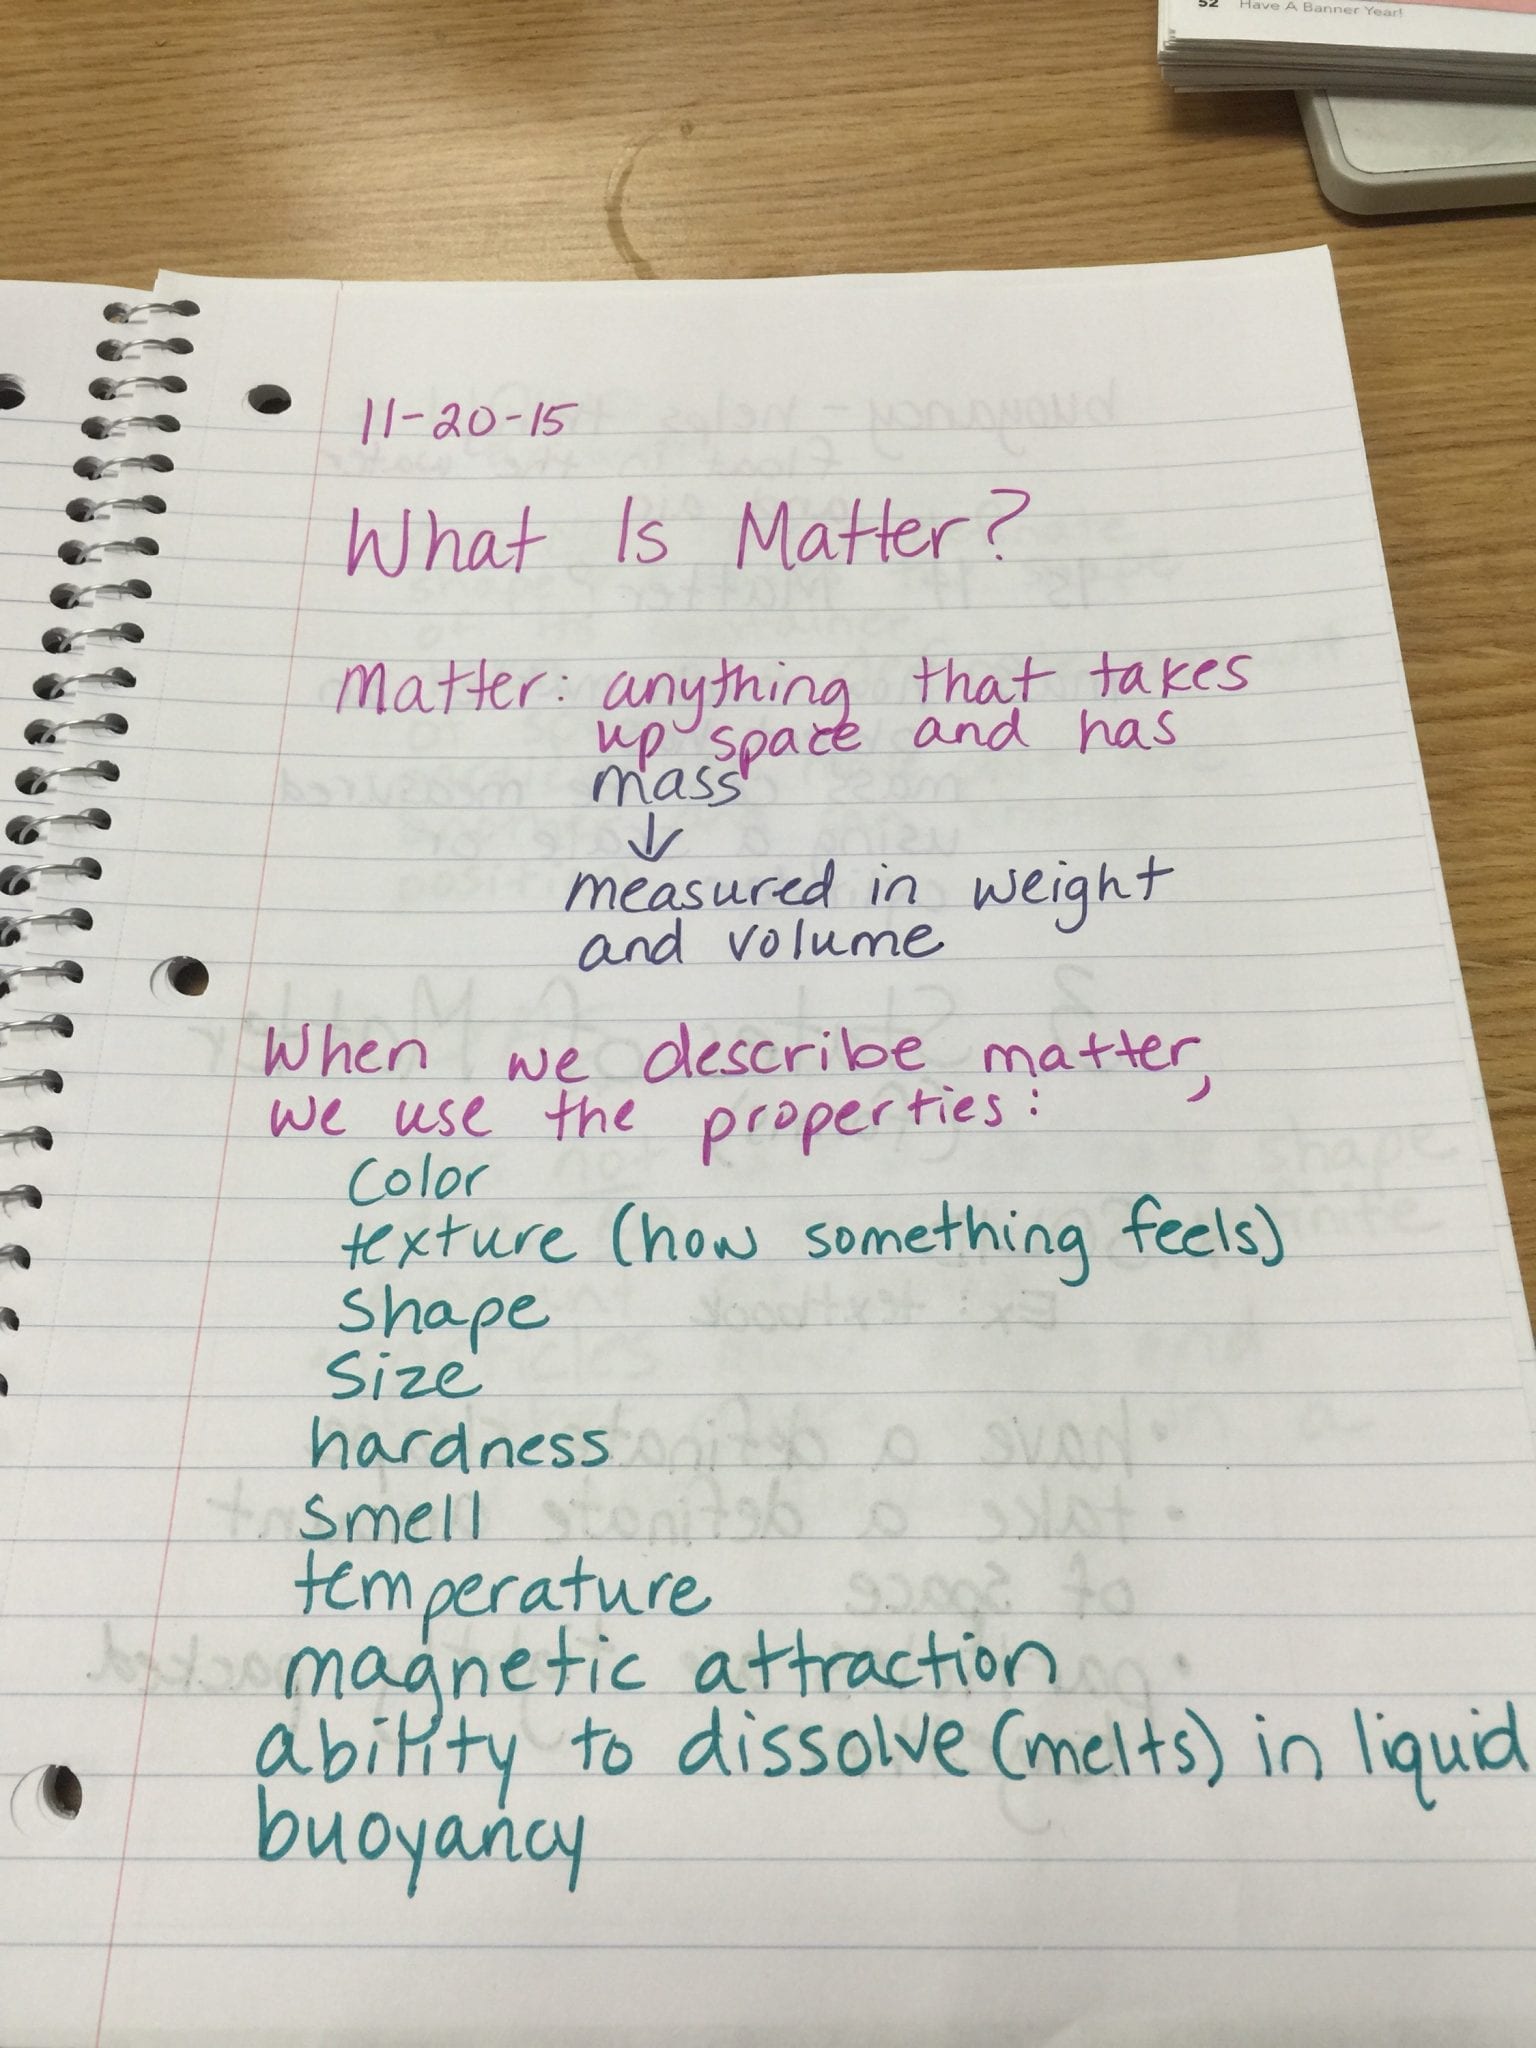 52 Have A Banner Year!
11-20-15
What Is Matter?
Matter: anything that takes
up space and has
mass
↓
measured in weight
and volume
When we describe matter,
we use the properties:
color
texture (how something feels)
shape
size
hardness
smell
temperature
magnetic attraction
ability to dissolve (melts) in liquid
buoyancy